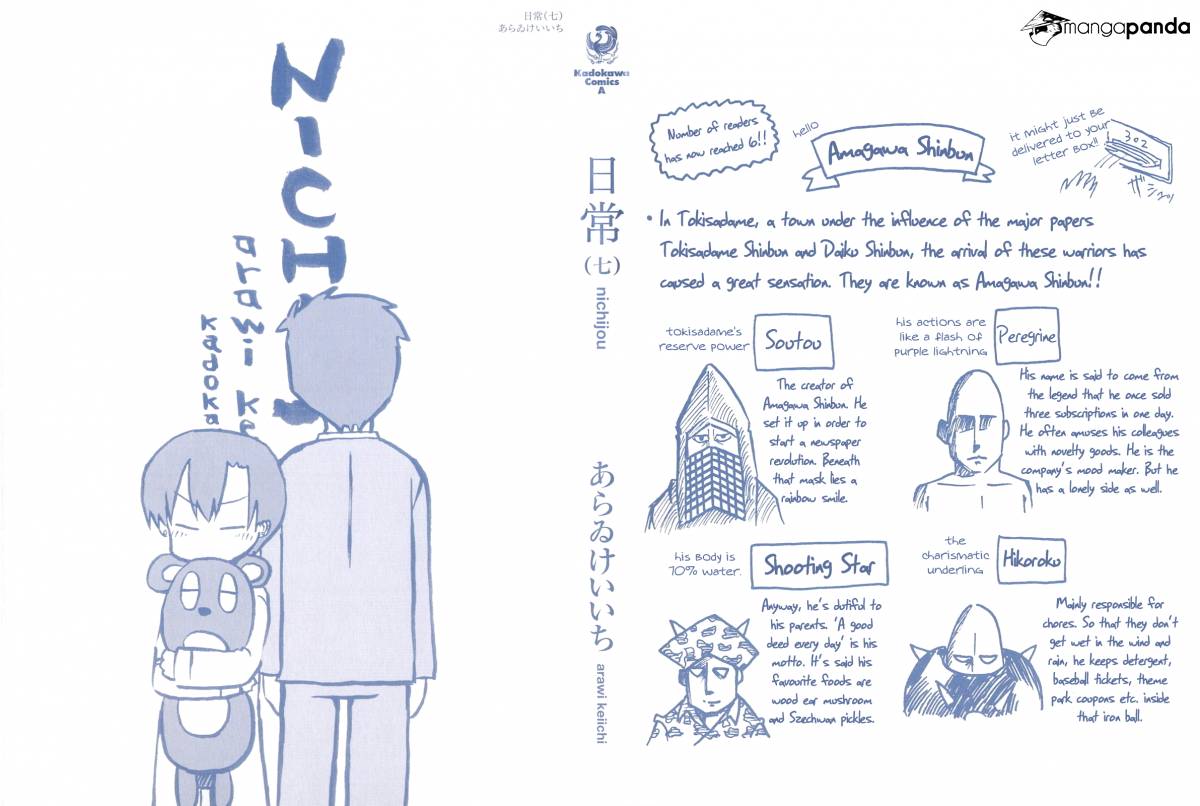 mangapanda
日常(七)
あらゐけいいち
Kadokawa
Comics
A
日常
(七)
nichijou
あらゐけいいち
arawi keiichi
NICHI
arawi ke
Kadoka
Number of readers
has now reached 6!!
hello
Amagawa Shinbun
it might just be
delivered to your
letter box!!
302
• In Tokisadame, a town under the influence of the major papers
Tokisadame Shinbun and Daiku Shinbun, the arrival of these warriors has
caused a great sensation. They are known as Amagawa Shinbun!!
tokisadame's
reserve power
Soutou
The creator of
Amagawa Shinbun. He
set it up in order to
start a newspaper
revolution. Beneath
that mask lies a
rainbow smile.
his actions are
like a flash of
purple lightning
Peregrine
His name is said to come from
the legend that he once sold
three subscriptions in one day.
He often amuses his colleagues
with novelty goods. He is the
company's mood maker. But he
has a lonely side as well.
his body is
70% water.
Shooting Star
Anyway, he's dutiful to
his parents. 'A good
deed every day' is his
motto. It's said his
favourite foods are
wood ear mushroom
and Szechwan pickles.
the
charismatic
underling
Hikoroku
Mainly responsible for
chores. So that they don't
get wet in the wind and
rain, he keeps detergent,
baseball tickets, theme
park coupons etc. inside
that iron ball.